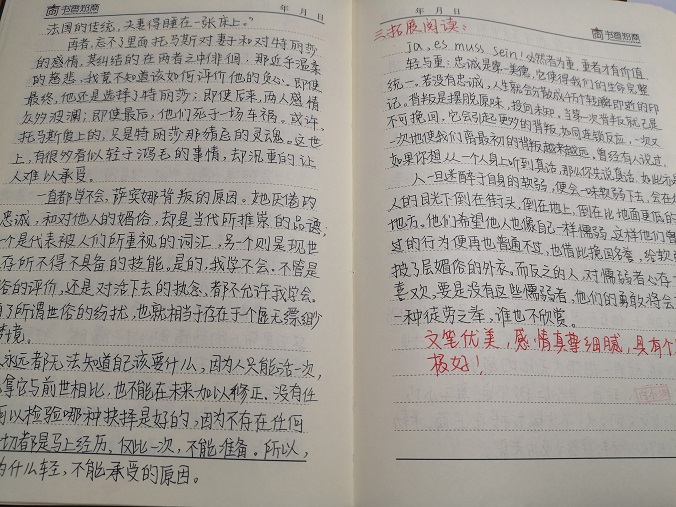 书香招商
年 月 日
法国的传统,夫妻得睡在一张床上。"
再者,忘不了里面托马斯对妻子和对特丽莎
的感情,其纠结的在两者之中徘徊,那近乎温柔
的慈悲,我竟不知道该如何评价他的负心。即使
最终,他还是选择了特丽莎;即使后来,两人感情
即使最后,他们死于一场车祸。或许,
托马斯傻上的,只是特丽莎那的灵魂。这世
上,有很多看似轻于鸿毛的事情,却沉重的让
人难以承受。
一直都学不会,萨宾娜背叛的原因。她厌倦的
忠诚,和对他人的媚俗,却是当代所推崇的品德;
个是代表被人们所重视的词汇,另一个则是现世
存所不得不具备的技能。是的,我学不会。不管是
俗的评价,还是对活下去的执念,都不允许我学会。
了所谓世俗的纷扰,也就相当于存在于个虚无缥缈
境。
人永远都无法知道自己该要什么,因为人只能活一次,
拿它与前世相比,也不能在来加以修正。没有任
可以检验哪种抉择是好的,因为不存在任何
切都是马上经历,仅此一次,不能准备。所以,
为什么轻,不能承受的原因。
年 月 日
书香招商
三.拓展阅读:
Ja, es muss sein!必然者为重,重者才有价值。
轻与重:忠诚是第一美德,它使得我们的生命完整
统一。若没有忠诚,人生就会分散成千个转瞬即逝的印
记。背叛是摆脱原味,投向未知。当第一次背叛就已是
不可挽回,它会引起更多的背叛,如同连锁反应,一次又
一次地使我们离最初的背叛越来越远。曾经有人说过,
如果你想从一个人身上听到真话,那么你先说真话。如此而
人一旦迷醉于自身的软弱,便会一味软弱下去,会在
人的目光下倒在街头,倒在地上,倒在比地面更低的
地方。他们希望他人也像自己一样懦弱,这样他们
过的行为便再也普通不过,也借此挽回名誉,给软
披了层媚俗的外衣。而反之的人,对懦弱者心存
喜欢,要是没有这些懦弱者,他们的勇敢将会
一种徒劳之举,谁也不欣赏。
文笔优美,感情真挚细腻,具有个
极好!